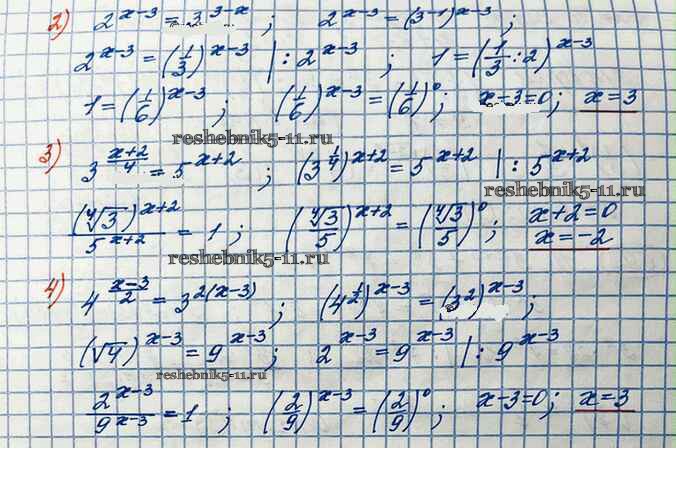 2) 2^(x-3) = 3^(3-x) ; 2^(x-3) = (3^(-1))^(x-3) ;
2^(x-3) = (1/3)^(x-3) | : 2^(x-3) ; 1 = (1/3 : 2)^(x-3)
1 = (1/6)^(x-3) ; (1/6)^(x-3) = (1/6)^0 ; x-3=0 ; x=3
reshebnik5-11.ru
3) 3^((x+2)/4) = 5^(x+2) ; (3^(1/4))^(x+2) = 5^(x+2) | : 5^(x+2)
reshebnik5-11.ru
(∜3)^(x+2) / 5^(x+2) = 1 ; (∜3/5)^(x+2) = (∜3/5)^0 ; x+2=0
x=-2
reshebnik5-11.ru
4) 4^((x-3)/2) = 3^(2(x-3)) ; (4^(1/2))^(x-3) = (3^2)^(x-3) ;
(√4)^(x-3) = 9^(x-3) ; 2^(x-3) = 9^(x-3) | : 9^(x-3)
reshebnik5-11.ru
2^(x-3) / 9^(x-3) = 1 ; (2/9)^(x-3) = (2/9)^0 ; x-3=0 ; x=3